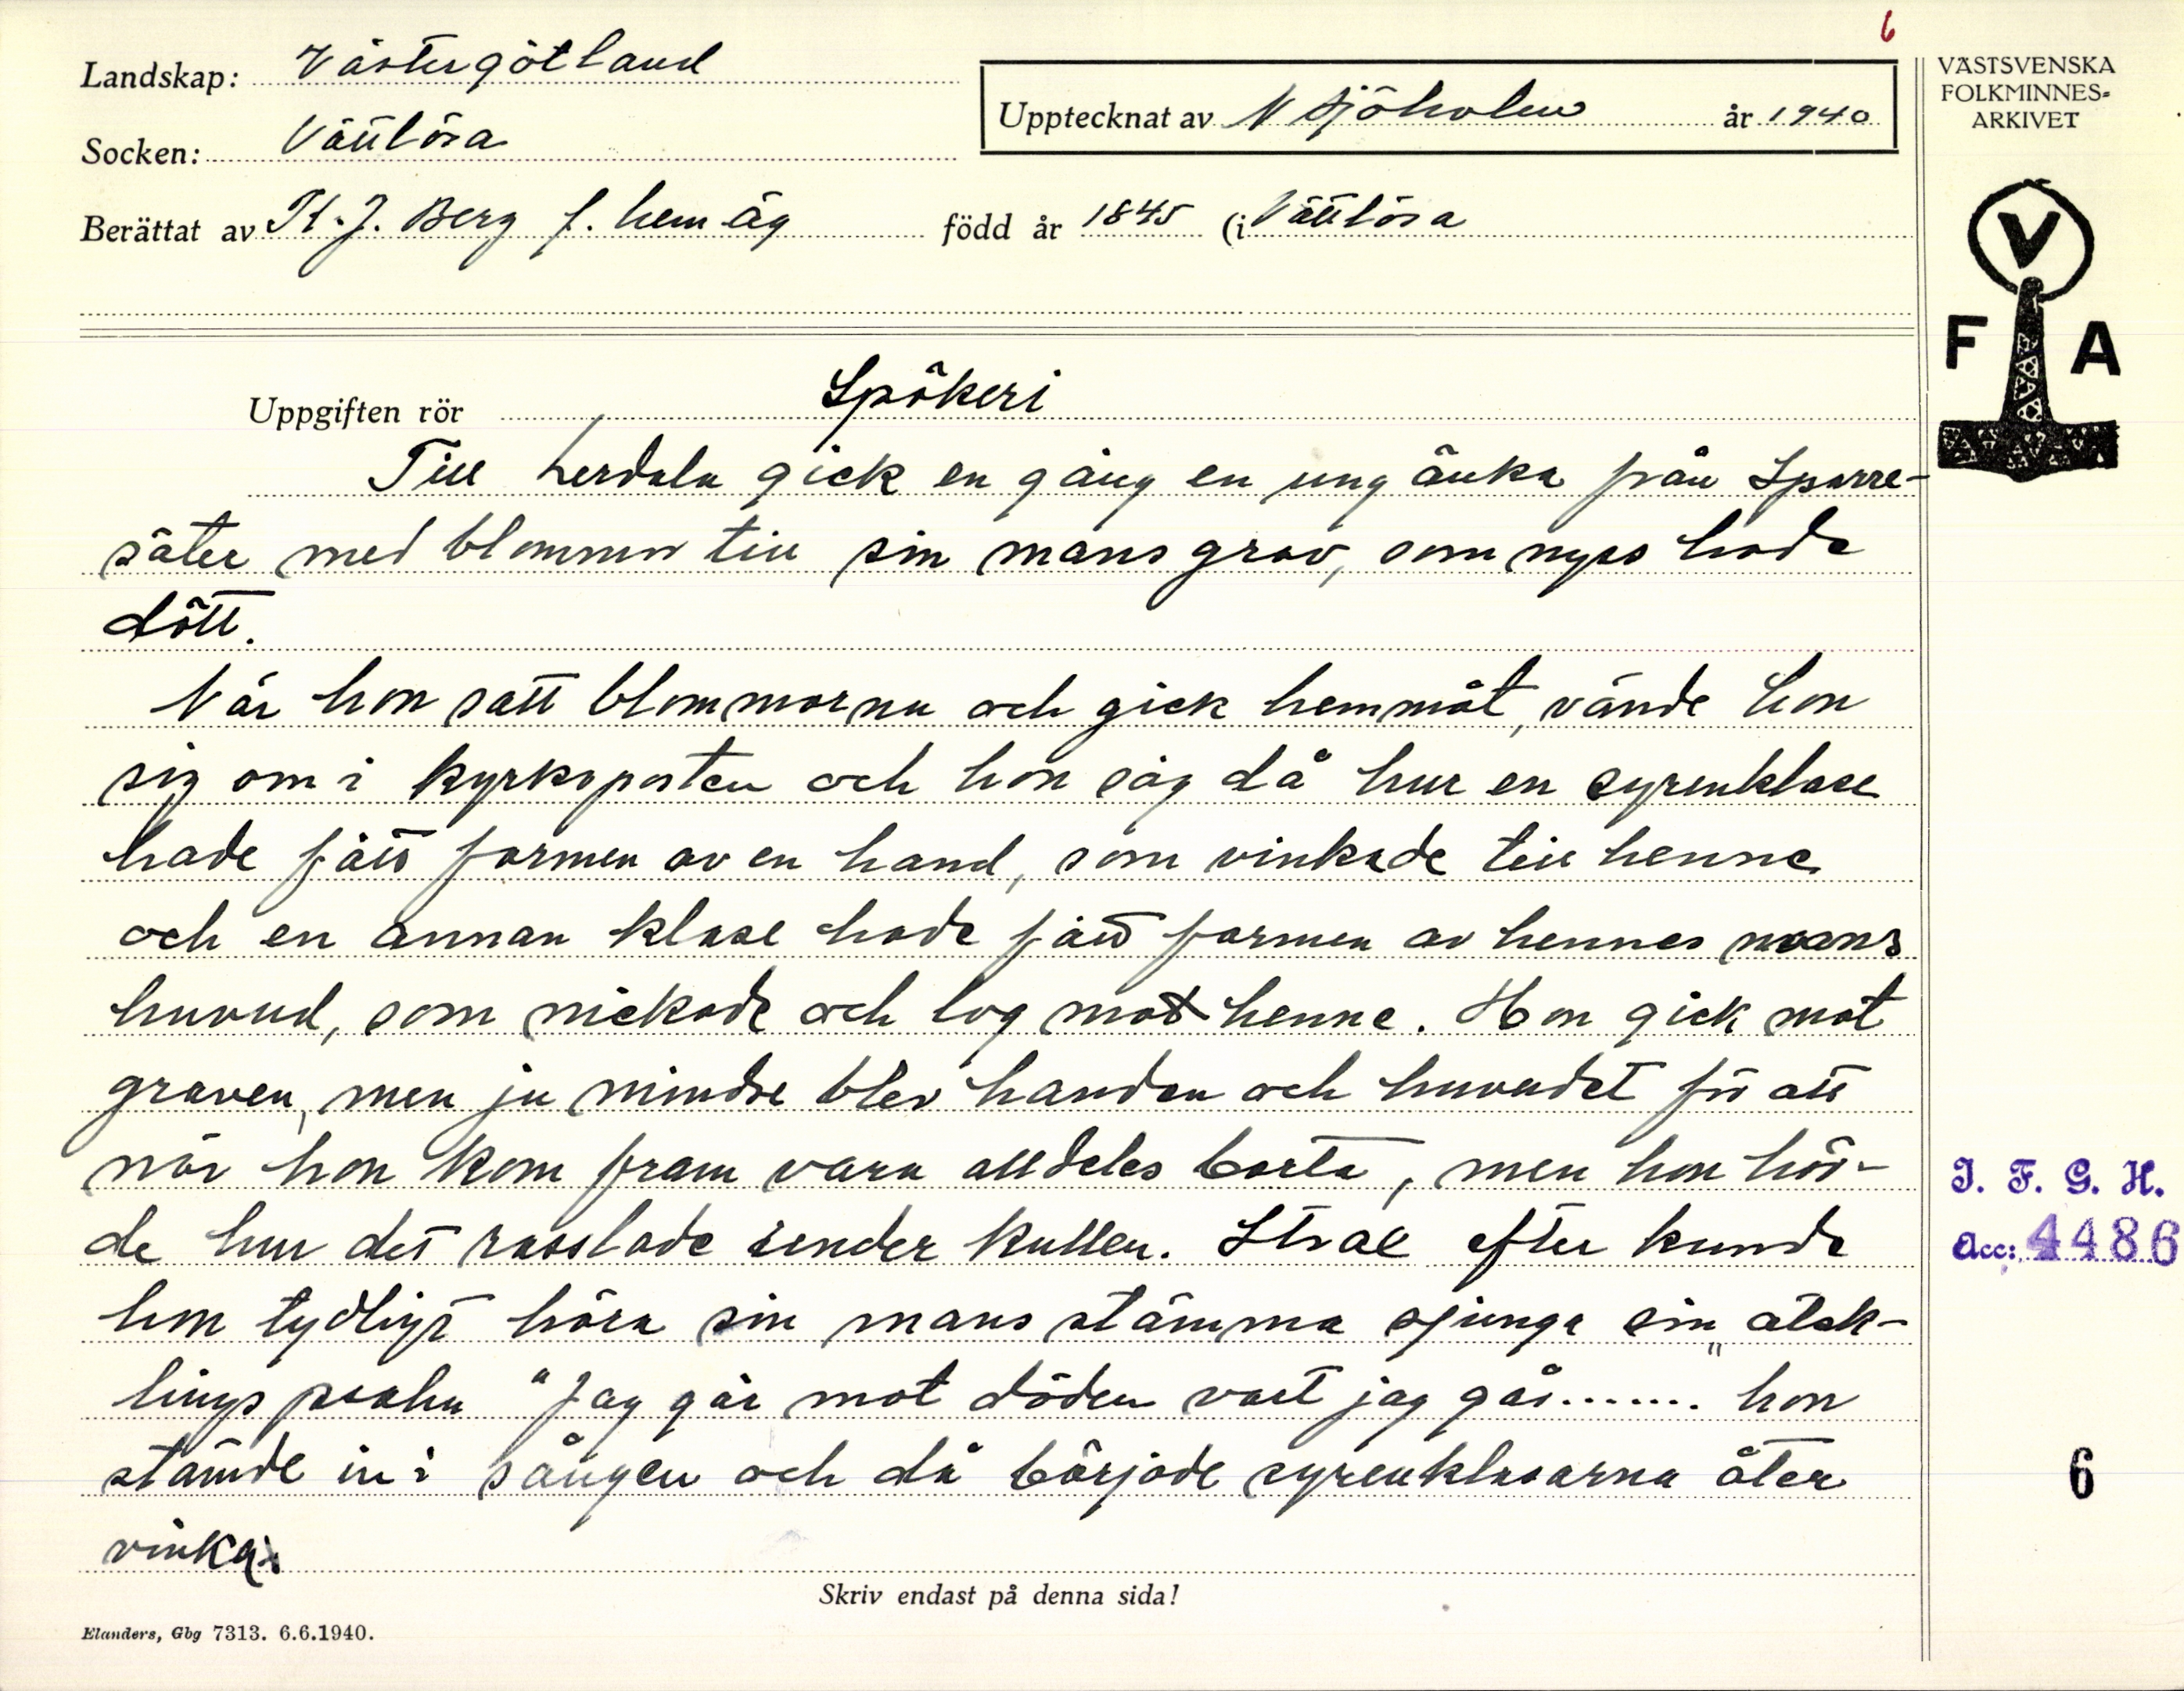 6
Landskap: Västergötland
Socken: Vättlösa
Upptecknat av N Sjöholm år 1940
Berättat av K. J. Berg f. hem äg född år 1845 (i Vättlösa
VÄSTSVENSKA
FOLKMINNES-
ARKIVET
V
F A
Uppgiften rör Spökeri
Till Lerdala gick en gång en ung änka från Sparre-
säter med blommor till sin mans grav, som nyss hade
dött.
När hon satt blommorna och gick hemmåt, vände hon
sig om i kyrkoporten och hon såg då hur en syrenklase
hade fått formen av en hand, som vinkade till henne
och en annan klase hade fått formen av hennes mans
huvud, som nickade och log mot henne. Hon gick mot
graven, men ju mindre blev handen och huvudet för att
när hon kom fram vara alldeles borta, men hon hör-
de hur det rasslade under kullen. Strax efter kunde
hon tydligt höra sin mans stämma sjunga sin älsk-
lingspsalm "Jag går mot döden vart jag går......." hon
stämde in i sången och då började syrenklasarna åter
vinka.
I. F. G. H.
Acc: 4486
6
Skriv endast på denna sida!
Elanders, Gbg 7313. 6.6.1940.